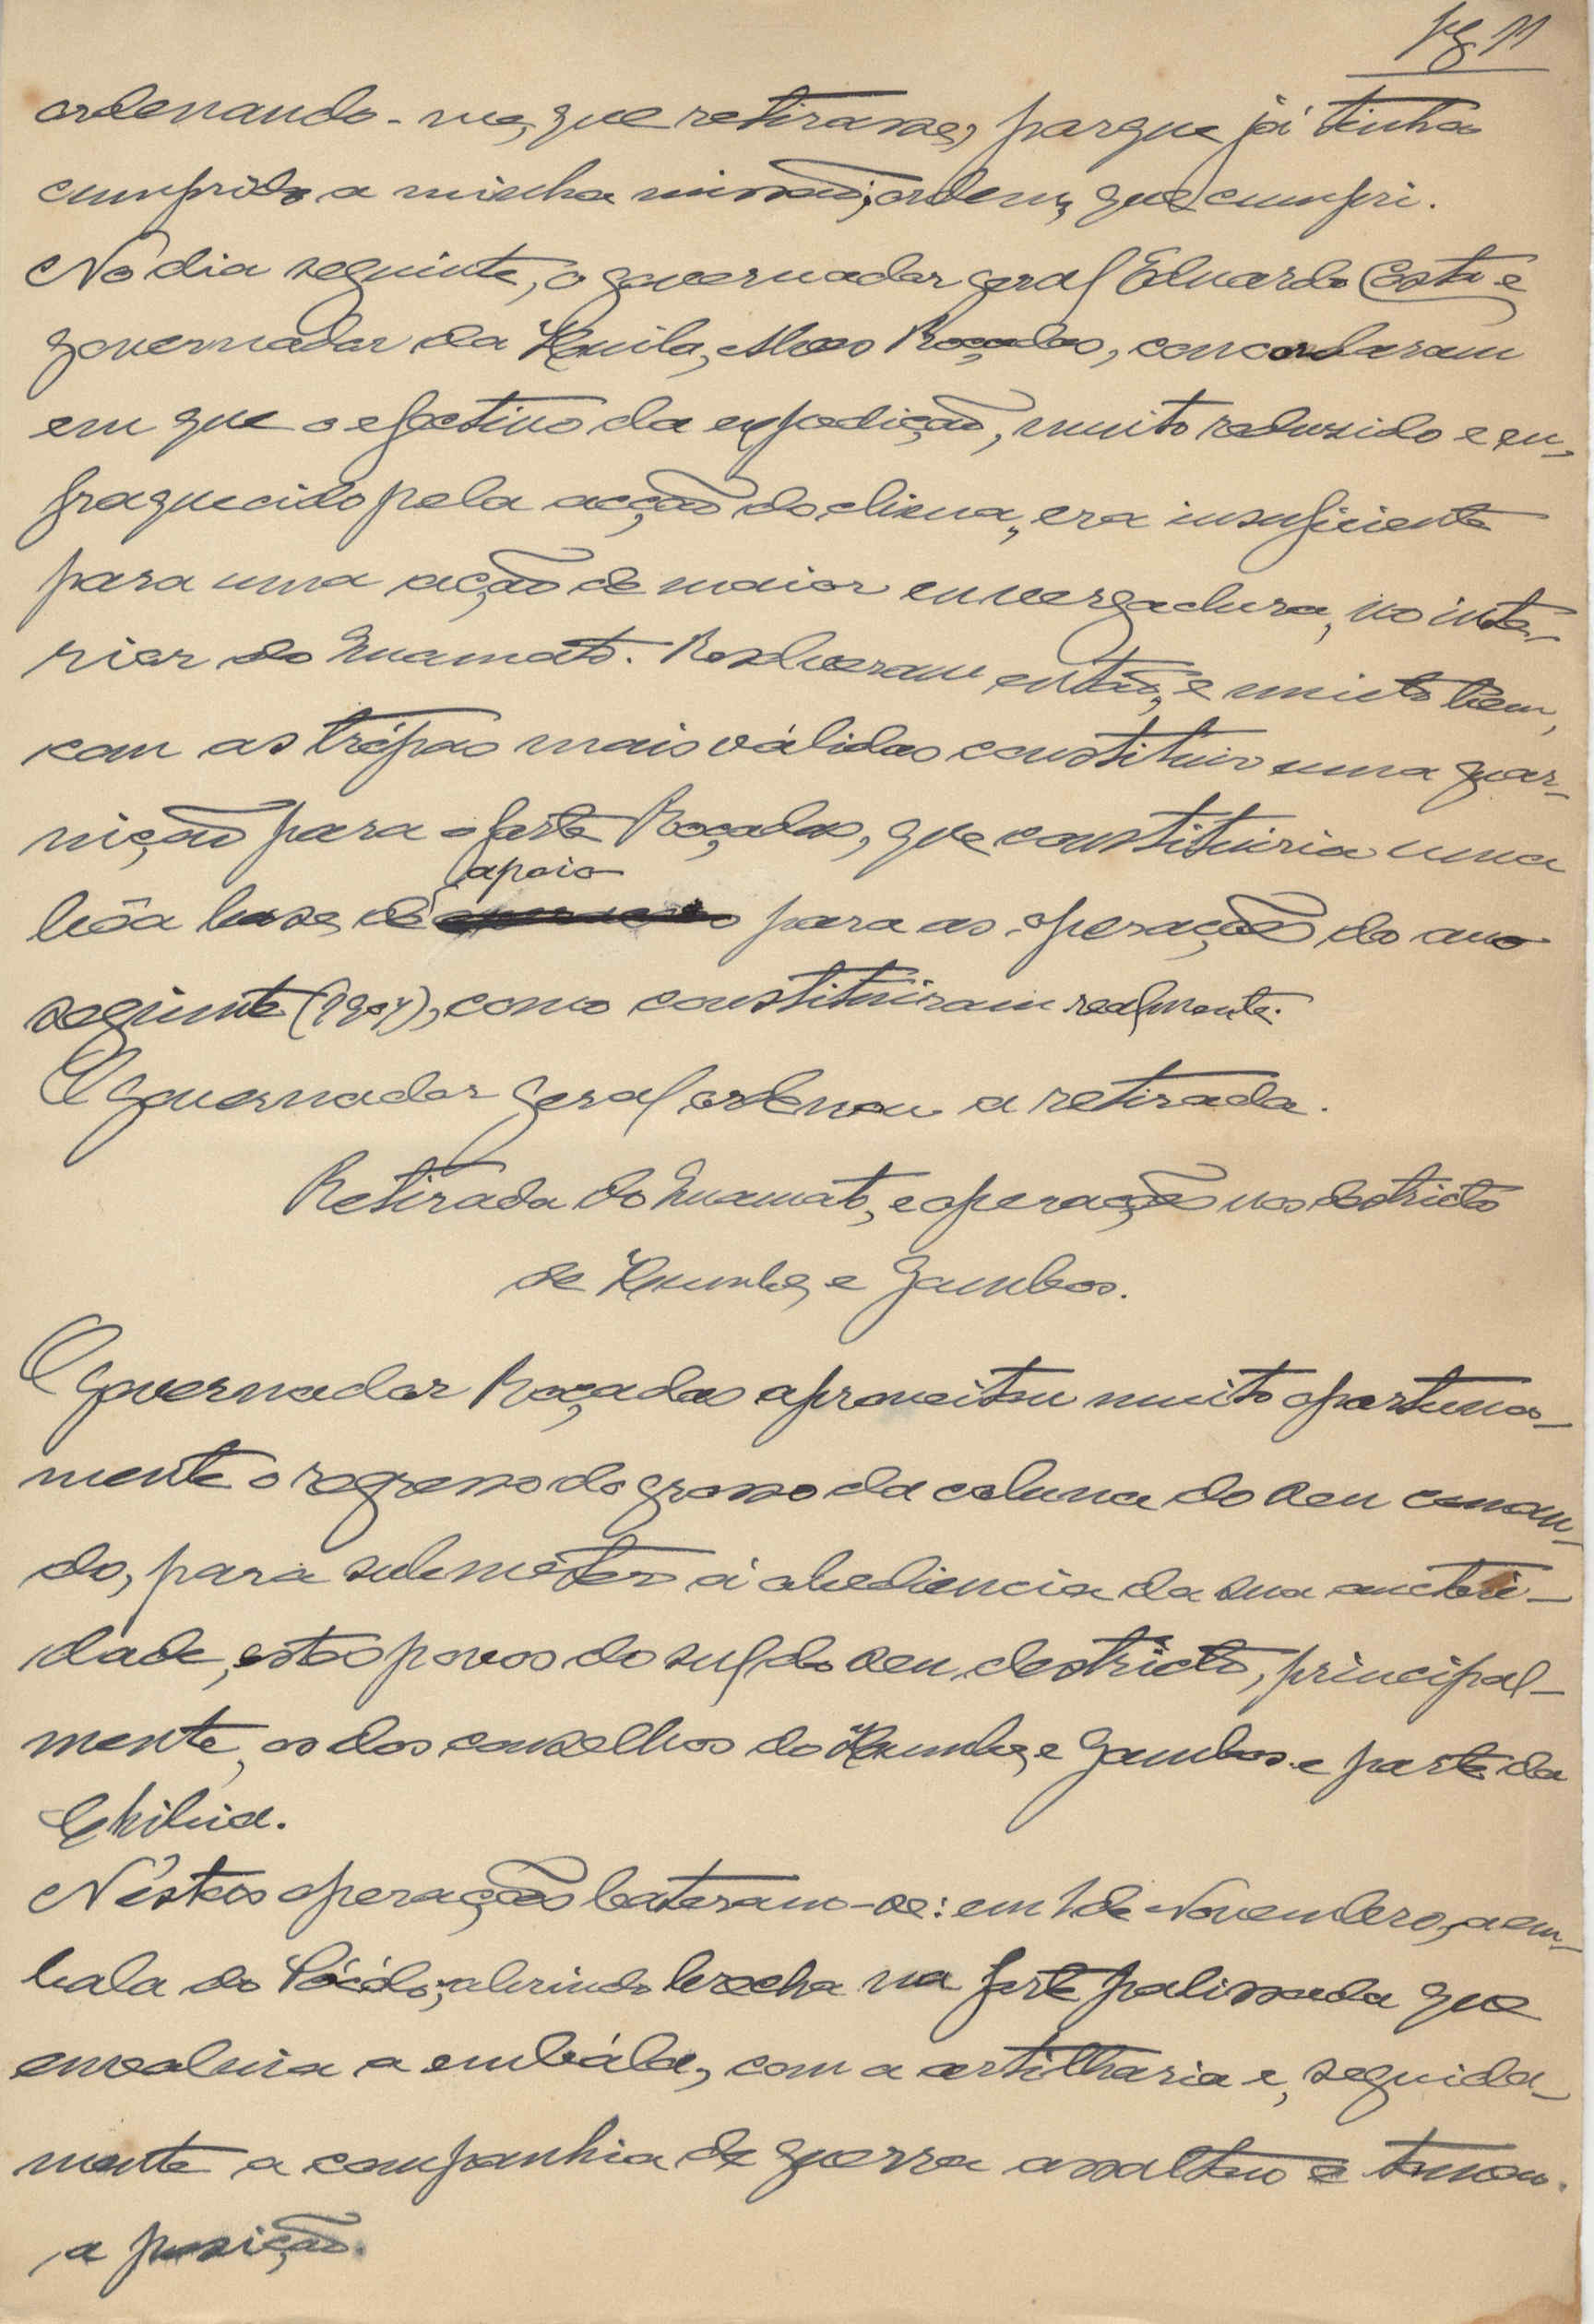 pg 11
ordenando-me, que retirasse, porque já tinha
cumprido a minha missão; ordem, que cumpri.
No dia seguinte, o governador geral Eduardo Costa e
governador da Huila, Alves Roçadas, concordaram
em que o efectivo da expedição, muito reduzido e en-
fraquecido pela acção do clima, era insuficiente
para uma acção de maior envergadura, no inte-
rior do Cuamato. Resolveram então, e muito bem,
com as trópas mais válidas constituir uma guar-
nição para o forte Roçadas, que constituiria uma
bôa base, de apoio para as operações do ano
seguinte (1907), como constituiram realmente.
O governador geral ordenou a retirada.
Retirada do Cuamato, e operações nos destrictos
de Humbe, e Gambos.
O governador Roçadas aproveitou muito oportuna-
mente o regresso do grosso da coluna do seu coman-
do, para submeter á obediencia da sua auctori-
dade, estes povos do sul do seu destricto, principal-
mente, os dos conselhos do Humbe, e Gambos e parte da
Chibia.
N'estas operações bateram-se: em 1 de Novembro, a em-
bala do Pócólo; abrindo brecha na forte palissada que
envolvia a embála, com a artilharia e, seguida-
mente a companhia de guerra assaltou e tomou
a posição.